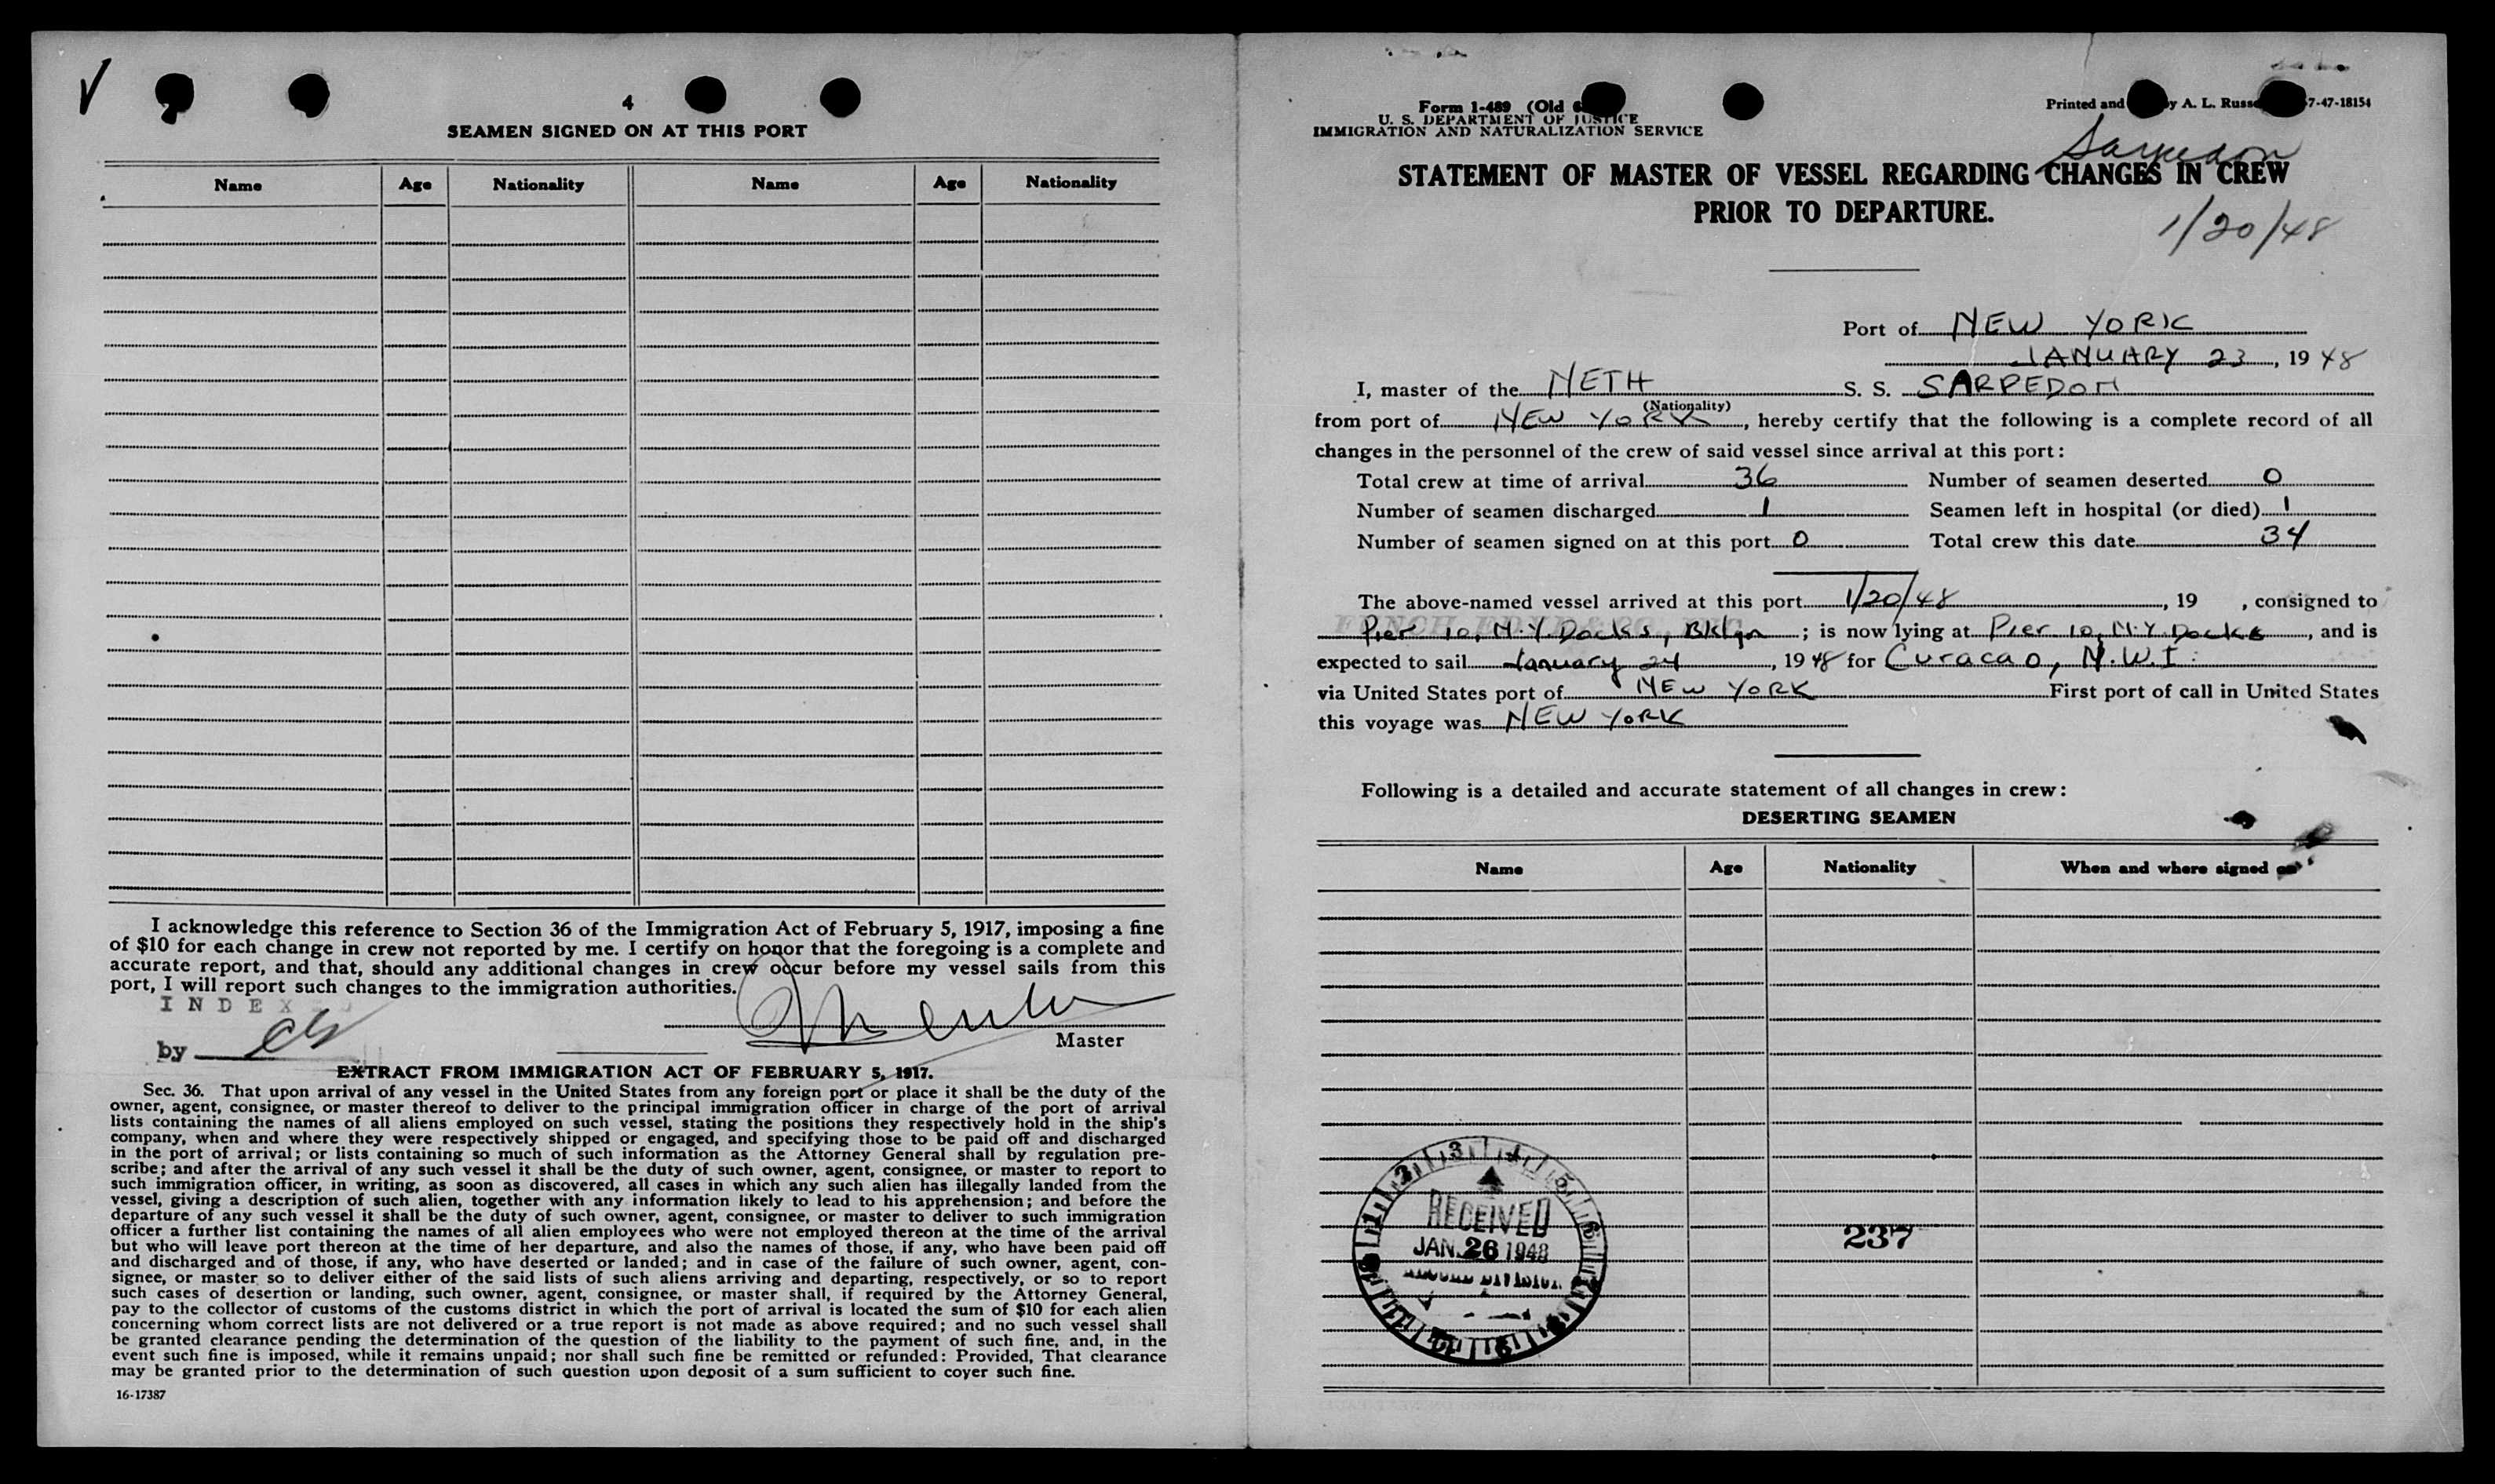 4
SEAMEN SIGNED ON AT THIS PORT
Name Age Nationality Name Age Nationality
I acknowledge this reference to Section 36 of the Immigration Act of February 5, 1917, imposing a fine
of $10 for each change in crew not reported by me. I certify on honor that the foregoing is a complete and
accurate report, and that, should any additional changes in crew occur before my vessel sails from this
port, I will report such changes to the immigration authorities.
INDEXED
by
Master
EXTRACT FROM IMMIGRATION ACT OF FEBRUARY 5, 1917.
Sec. 36. That upon arrival of any vessel in the United States from any foreign port or place it shall be the duty of the
owner, agent, consignee, or master thereof to deliver to the principal immigration officer in charge of the port of arrival
lists containing the names of all aliens employed on such vessel, stating the positions they respectively hold in the ship's
company, when and where they were respectively shipped or engaged, and specifying those to be paid off and discharged
in the port of arrival; or lists containing so much of such information as the Attorney General shall by regulation pre-
scribe; and after the arrival of any such vessel it shall be the duty of such owner, agent, consignee, or master to report to
such immigration officer, in writing, as soon as discovered, all cases in which any such alien has illegally landed from the
vessel, giving a description of such alien, together with any information likely to lead to his apprehension; and before the
departure of any such vessel it shall be the duty of such owner, agent, consignee, or master to deliver to such immigration
officer a further list containing the names of all alien employees who were not employed thereon at the time of the arrival
but who will leave port thereon at the time of her departure, and also the names of those, if any, who have been paid off
and discharged and of those, if any, who have deserted or landed; and in case of the failure of such owner, agent, con-
signee, or master so to deliver either of the said lists of such aliens arriving and departing, respectively, or so to report
such cases of desertion or landing, such owner, agent, consignee, or master shall, if required by the Attorney General,
pay to the collector of customs of the customs district in which the port of arrival is located the sum of $10 for each alien
concerning whom correct lists are not delivered or a true report is not made as above required; and no such vessel shall
be granted clearance pending the determination of the question of the liability to the payment of such fine, and, in the
event such fine is imposed, while it remains unpaid; nor shall such fine be remitted or refunded: Provided, That clearance
may be granted prior to the determination of such question upon deposit of a sum sufficient to cover such fine.
16-17387
Form 1-489 (Old
U. S. DEPARTMENT OF JUSTICE
IMMIGRATION AND NATURALIZATION SERVICE
Printed and by A. L. 7-47-18154
Sarpedon
STATEMENT OF MASTER OF VESSEL REGARDING CHANGES IN CREW
PRIOR TO DEPARTURE.
1/20/48
Port of NEW YORK
JANUARY 23, 1948
I, master of the NETH S. S. SARPEDON
(Nationality)
from port of NEW YORK, hereby certify that the following is a complete record of all
changes in the personnel of the crew of said vessel since arrival at this port:
Total crew at time of arrival 36 Number of seamen deserted 0
Number of seamen discharged 1 Seamen left in hospital (or died) 1
Number of seamen signed on at this port 0 Total crew this date 34
The above-named vessel arrived at this port 1/20/48, 19 , consigned to
Pier 10, N.Y. Docks, Bklyn; is now lying at Pier 10, N.Y. Docks, and is
expected to sail January 24, 1948 for Curacao, N.W.I.
via United States port of NEW YORK First port of call in United States
this voyage was NEW YORK
Following is a detailed and accurate statement of all changes in crew:
DESERTING SEAMEN
Name Age Nationality When and where signed on
RECEIVED
JAN. 26 1948
237